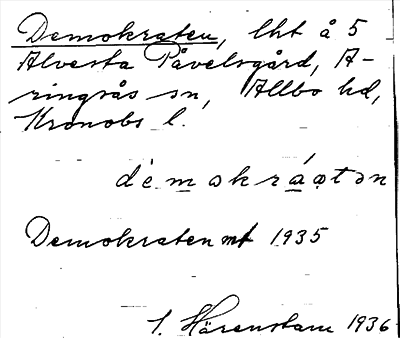 Demokraten, lht å 5
Alvesta Påvelsgård, A-
ringsås sn, Allbo hd,
Kronobs l.
dèmokráatən
Demokraten mt 1935
I. Härenstam 1936